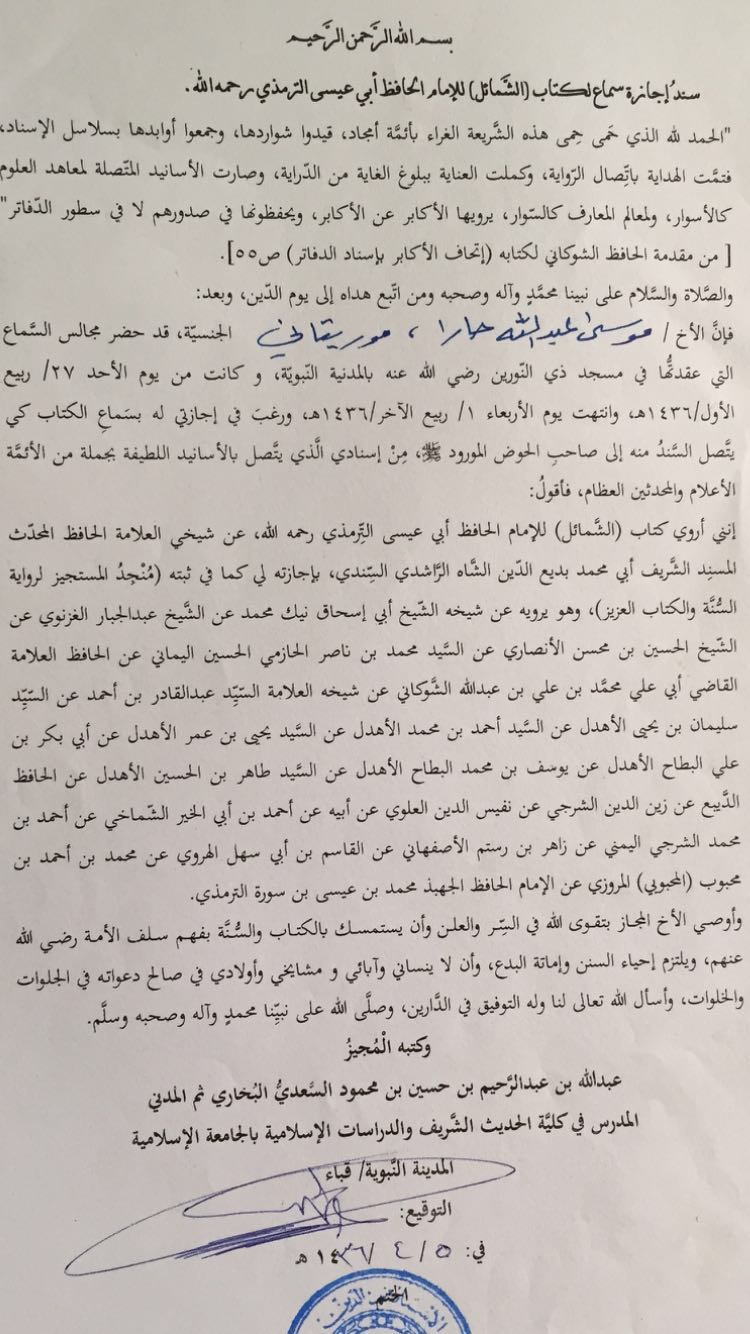 بسم الله الرَّحمن الرَّحيم
سندُ إجازة سماع لكتاب (الشَّمائل) للإمام الحافظ أبي عيسى الترمذي رحمه الله.
"الحمد لله الذي حَمى حِمى هذه الشَّريعة الغراء بأئمَّة أمجاد، قيدوا شواردها، وجمعوا أوابدها بسلاسل الإسناد،
فتمَّت الهداية باتِّصال الرِّواية، وكملت العناية ببلوغ الغاية من الدِّراية، وصارت الأسانيد المتّصلة لمعاهد العلوم
كالأسوار، ولمعالم المعارف كالسِّوار، يرويها الأكابر عن الأكابر، ويحفظونها في صدورهم لا في سطور الدّفاتر"
[ من مقدمة الحافظ الشوكاني لكتابه (إتحاف الأكابر بإسناد الدفاتر) ص٥٥].
والصَّلاة والسَّلام على نبينا محمَّدٍ وآله وصحبه ومن اتّبع هداه إلى يوم الدّين، وبعد:
فإنَّ الأخ / موسى عبد الله جارا ، موريتاني الجنسيّة، قد حضر مجالس السَّماع
التي عقدتُّها في مسجد ذي النّورين رضي الله عنه بالمدنية النّبويّة، و كانت من يوم الأحد ٢٧/ ربيع
الأول/١٤٣٦هـ، وانتهت يوم الأربعاء ١/ ربيع الآخر/١٤٣٦هـ، ورغبَ في إجازتي له بسَماعِ الكتاب كي
يتَّصل السَّندُ منه إلى صاحبِ الحوض المورود ﷺ، مِنْ إسنادي الَّذي يتَّصل بالأسانيد اللطيفة بجملة من الأئمَّة
الأعلام والمحدثين العظام، فأقولُ:
إنني أروي كتاب (الشَّمائل) للإمام الحافظ أبي عيسى التِّرمذي رحمه الله، عن شيخي العلامة الحافظ المحدّث
المسنِد الشَّريف أبي محمد بديع الدّين الشَّاه الرَّاشدي السِّندي، بإجازته لي كما في ثبته (مُنْجِدُ المستجيز لرواية
السُّنَّة والكتاب العزيز)، وهو يرويه عن شيخه الشّيخ أبي إسحاق نيك محمد عن الشَّيخ عبدالجبار الغزنوي عن
الشّيخ الحسين بن محسن الأنصاري عن السَّيد محمد بن ناصر الحازمي الحسين اليماني عن الحافظ العلامة
القاضي أبي علي محمَّد بن علي بن عبدالله الشَّوكاني عن شيخه العلامة السَّيِّد عبدالقادر بن أحمد عن السَّيِّد
سليمان بن يحيى الأهدل عن السَّيد أحمد بن محمد الأهدل عن السَّيد يحيى بن عمر الأهدل عن أبي بكر بن
علي البطاح الأهدل عن يوسف بن محمد البطاح الأهدل عن السَّيد طاهر بن الحسين الأهدل عن الحافظ
الدَّيبع عن زين الدين الشرجي عن نفيس الدين العلوي عن أبيه عن أحمد بن أبي الخير الشّماخي عن أحمد بن
محمد الشرجي اليمني عن زاهر بن رستم الأصفهاني عن القاسم بن أبي سهل الهروي عن محمد بن أحمد بن
محبوب (المحبوبي) المروزي عن الإمام الحافظ الجهبذ محمد بن عيسى بن سورة الترمذي.
وأوصي الأخ المجاز بتقوى الله في السِّر والعلن وأن يستمسك بالكتاب والسُّنَّة بفهم سلف الأمة رضي الله
عنهم، ويلتزم إحياء السنن وإماتة البدع، وأن لا ينساني وآبائي و مشايخي وأولادي في صالح دعواته في الجلوات
والخلوات، وأسأل الله تعالى لنا وله التوفيق في الدَّارين، وصلَّى الله على نبيِّنا محمدٍ وآله وصحبه وسلَّم.
وكتبه الْمُجيزُ
عبدالله بن عبدالرَّحيم بن حسين بن محمود السَّعديُّ البُخاري ثم المدني
المدرس في كليَّة الحديث الشَّريف والدراسات الإسلامية بالجامعة الإسلامية
المدينة النَّبوية/ قباء
التوقيع:
في: ٥ / ٤ / ١٤٣٦ هـ
الختم